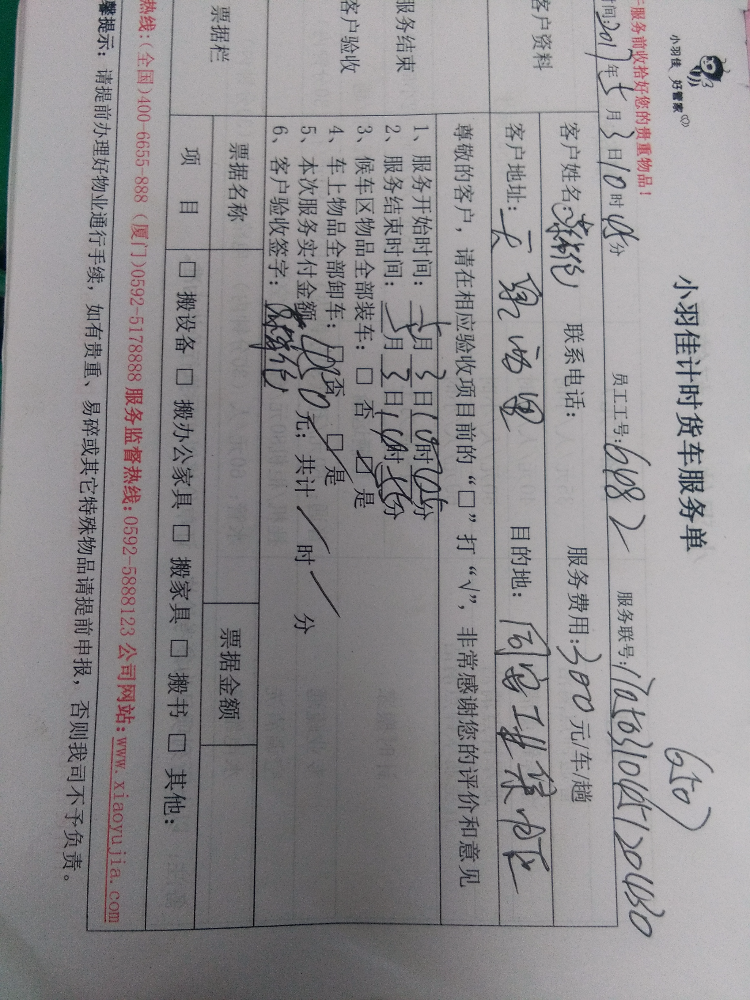 小羽佳 好管家
小羽佳计时货车服务单
服务前收拾好您的贵重物品!
时间:2017年5月3日10时05分 员工工号:6482 服务联号:
客户资料
客户姓名: 联系电话: 服务费用:300元/车/趟
客户地址: 目的地:同安工业集中区
尊敬的客户,请在相应验收项目前的“□”打“√”,非常感谢您的评价和意见
服务结束
客户验收
1、服务开始时间:5月3日10时05分
2、服务结束时间:5月3日
3、候车区物品全部装车:□ 否 ☑ 是
4、车上物品全部卸车:□ 否 ☑ 是
5、本次服务实付金额: 元;共计 / 时 / 分
6、客户验收签字:
票据栏
票据名称 票据金额
项 目 □ 搬设备 □ 搬办公家具 □ 搬家具 □ 搬书 □ 其他:
热线:(全国)400-6655-888 (厦门)0592-5178888 服务监督热线:0592-5888123 公司网站:www.xiaoyujia.com
馨提示: 请提前办理好物业通行手续,如有贵重、易碎或其它特殊物品请提前申报,否则我司不予负责。